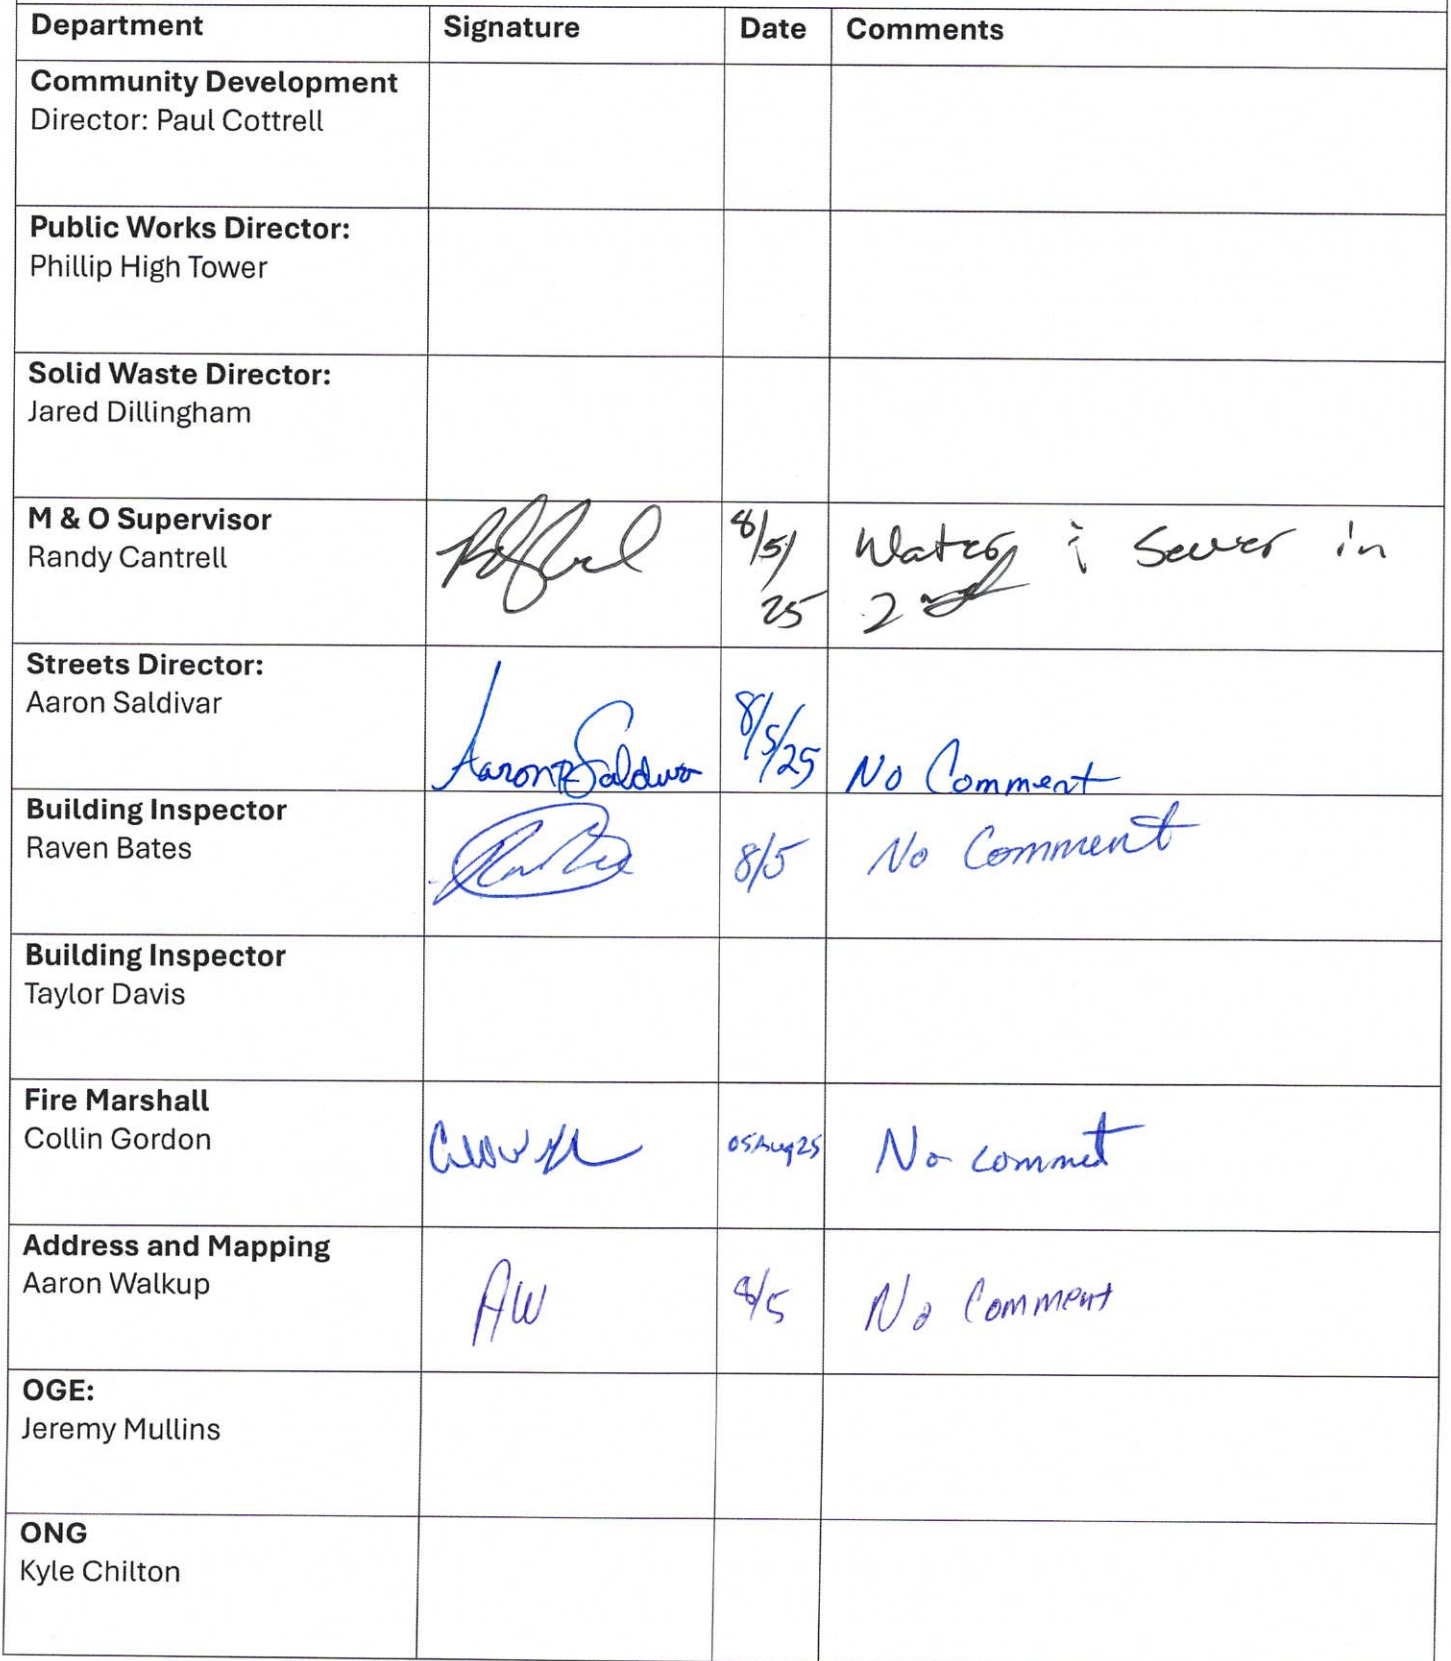 Department Signature Date Comments
Community Development
Director: Paul Cottrell
Public Works Director:
Phillip High Tower
Solid Waste Director:
Jared Dillingham
M & O Supervisor
Randy Cantrell
8/5/
25
Water & Sewer in
2nd
Streets Director:
Aaron Saldivar
Aaron Saldivar 8/5/25 No Comment
Building Inspector
Raven Bates
8/5 No Comment
Building Inspector
Taylor Davis
Fire Marshall
Collin Gordon
05Aug25 No comment
Address and Mapping
Aaron Walkup
AW 8/5 No Comment
OGE:
Jeremy Mullins
ONG
Kyle Chilton